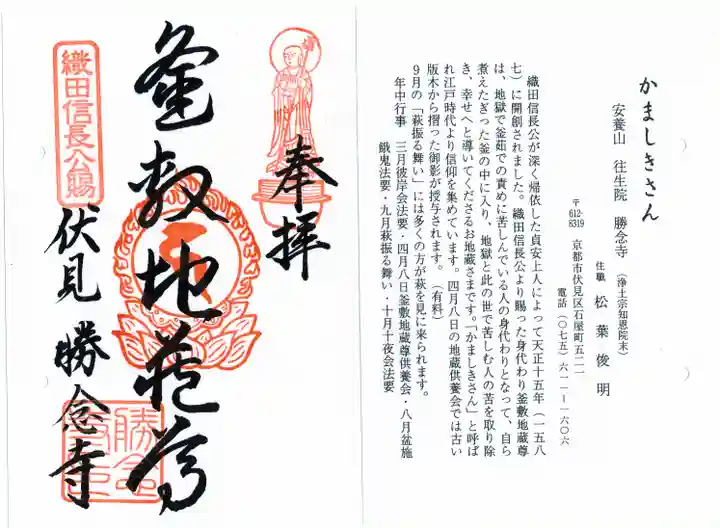 奉拝
釜敷地蔵尊
織田信長公賜
伏見 勝念寺
勝念寺
かましきさん
安養山 往生院 勝念寺 (浄土宗知恩院末)
住職 松葉俊明
〒612-8319 京都市伏見区石屋町五二一
電話(〇七五)六一一-一六〇六
織田信長公が深く帰依した貞安上人によって天正十五年(一五八
七)に開創されました。織田信長公より賜った身代わり釜敷地蔵尊
は、地獄で釜茹での責めに苦しんでいる人の身代わりとなって、自ら
煮えたぎった釜の中に入り、地獄と此の世で苦しむ人の苦を取り除
き、幸せへと導いてくださるお地蔵さまです。「かましきさん」と呼ば
れ江戸時代より信仰を集めています。四月八日の地蔵供養会では古い
版木から摺った御影が授与されます。(有料)
9月の「萩振る舞い」には多くの方が萩を見に来られます。
年中行事 三月彼岸会法要・四月八日釜敷地蔵尊供養会・八月盆施
餓鬼法要・九月萩振る舞い・十月十夜会法要